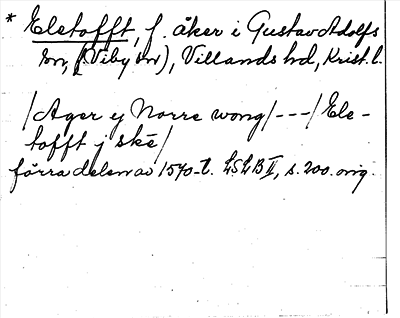 * Elstofft, f. åker i Gustav Adolfs
sn, (Viby sn), Villands hd, Krist. l.
/Ager y Norre wong/---/Ele-
tofft j skē/
förra delen av 1570-t. LSLB II, s. 200. orig.